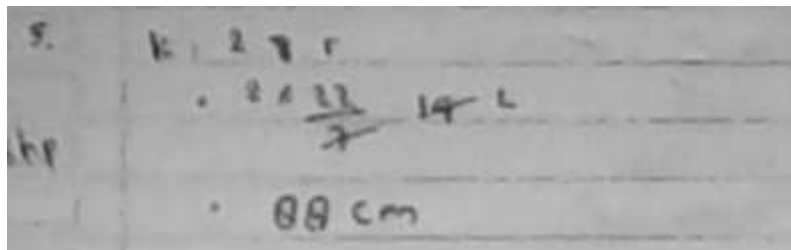 5. K = 2 π r
= 2 x 22/7 14 2
hp
= 88 cm